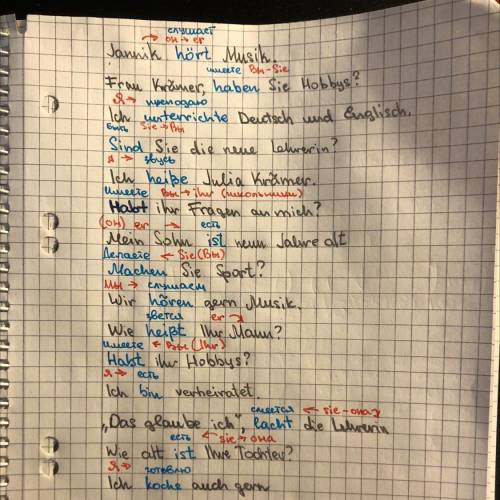 слушает
→ он → er
Jannik hört Musik.
имеете Вы-Sie
Frau Krämer, haben Sie Hobbys?
Я → преподаю
Ich unterrichte Deutsch und Englisch.
быть Sie → Вы
Sind Sie die neue Lehrerin?
Я → звусь
Ich heiße Julia Krämer.
имеете Вы → ihr (школьники)
Habt ihr Fragen an mich?
(он) er → есть
Mein Sohn ist neun Jahre alt
Делаете ← Sie (Вы)
Machen Sie Sport?
Мы → слушаем
Wir hören gern Musik.
зовется er
Wie heißt Ihr Mann?
имеете ← Вы (Ihr)
Habt ihr Hobbys?
Я → есть
Ich bin verheiratet.
смеется ← sie-она
„Das glaube ich", lacht die Lehrerin
есть ← sie → она
Wie alt ist Ihre Tochter?
Я → готовлю
Ich koche auch gern